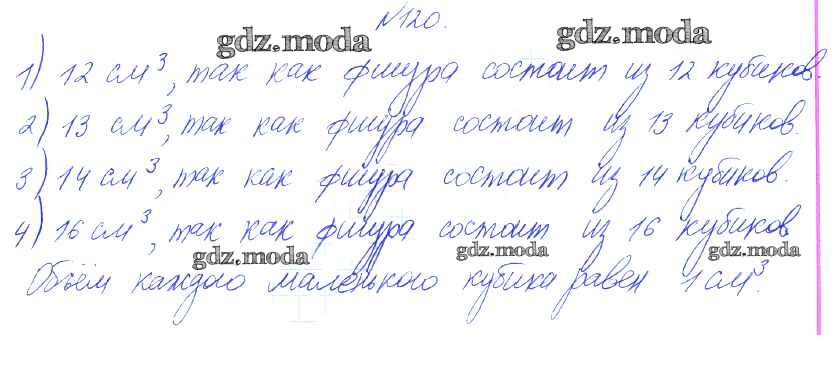 №120.
gdz.moda gdz.moda
1) 12 см³, так как фигура состоит из 12 кубиков.
2) 13 см³, так как фигура состоит из 13 кубиков.
3) 14 см³, так как фигура состоит из 14 кубиков.
4) 16 см³, так как фигура состоит из 16 кубиков
gdz.moda gdz.moda gdz.moda
Объём каждого маленького кубика равен 1 см³.
gdz.moda